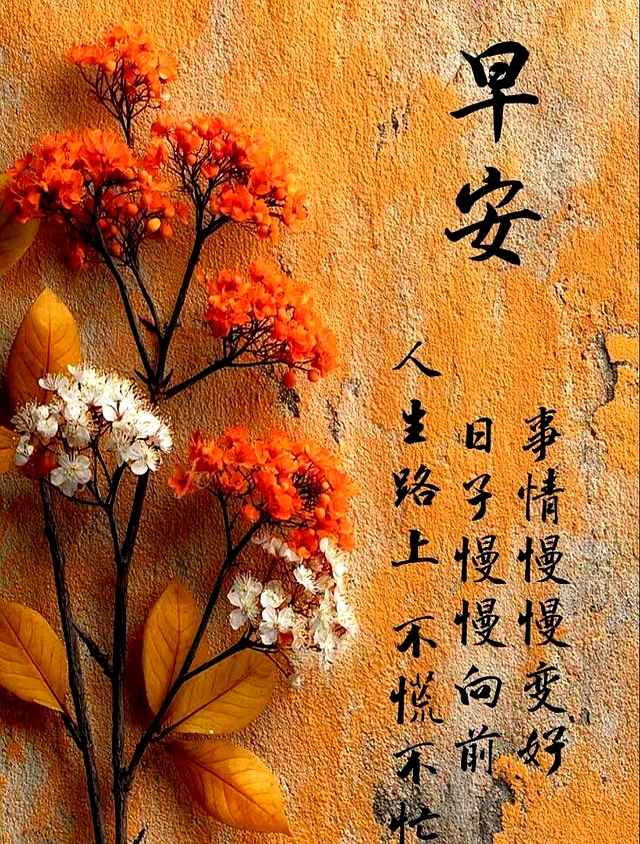 早安
事情慢慢变好
日子慢慢向前
人生路上 不慌不忙